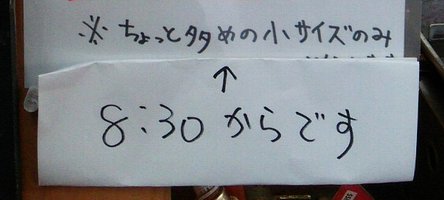 ※ちょっと多めの小サイズのみ
↑
8:30からです